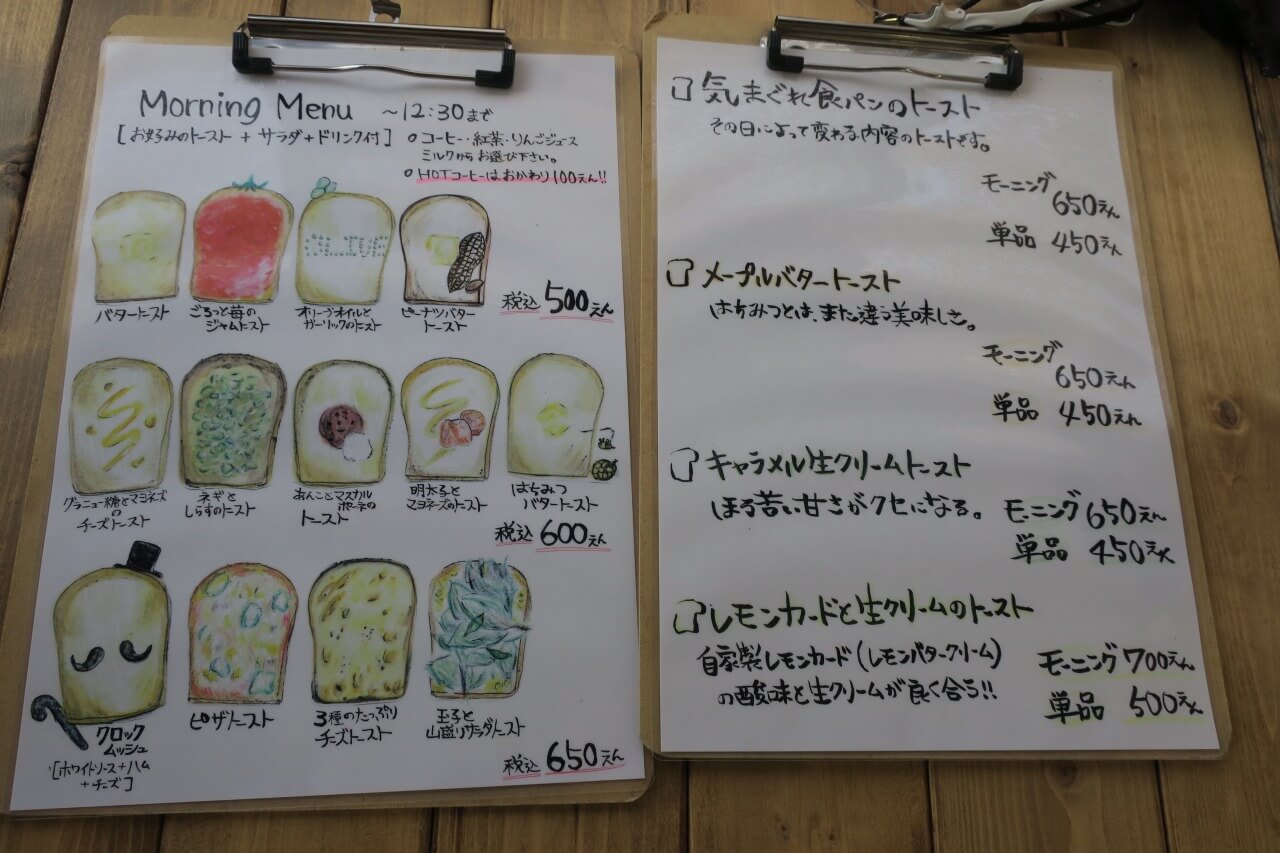 Morning Menu ～12:30まで
[お好みのトースト + サラダ+ドリンク付]
○コーヒー・紅茶・りんごジュース
ミルクからお選び下さい。
○HOTコーヒーはおかわり100えん!!
OLIVE
バタートースト
ごろっと苺の
ジャムトースト
オリーブオイルと
ガーリックのトースト
ピーナツバター
トースト
税込 500えん
グラニュー糖とマヨネーズ
の
チーズトースト
ネギと
しらすのトースト
あんことマスカル
ポーネの
トースト
明太子と
マヨネーズのトースト
はちみつ
バタートースト
税込 600えん
クロック
ムッシュ
[ホワイトソース+ハム
+チーズ]
ピザトースト
3種のたっぷり
チーズトースト
玉子と
山盛りサラダトースト
税込 650えん
気まぐれ食パンのトースト
その日によって変わる内容のトーストです。
モーニング
650えん
単品 450えん
メープルバタートースト
はちみつとは、また違う美味しさ。
モーニング
650えん
単品 450えん
キャラメル生クリームトースト
ほろ苦い甘さがクセになる。
モーニング 650えん
単品 450えん
レモンカードと生クリームのトースト
自家製レモンカード(レモンバタークリーム)
の酸味と生クリームが良く合う!!
モーニング 700えん
単品 500えん